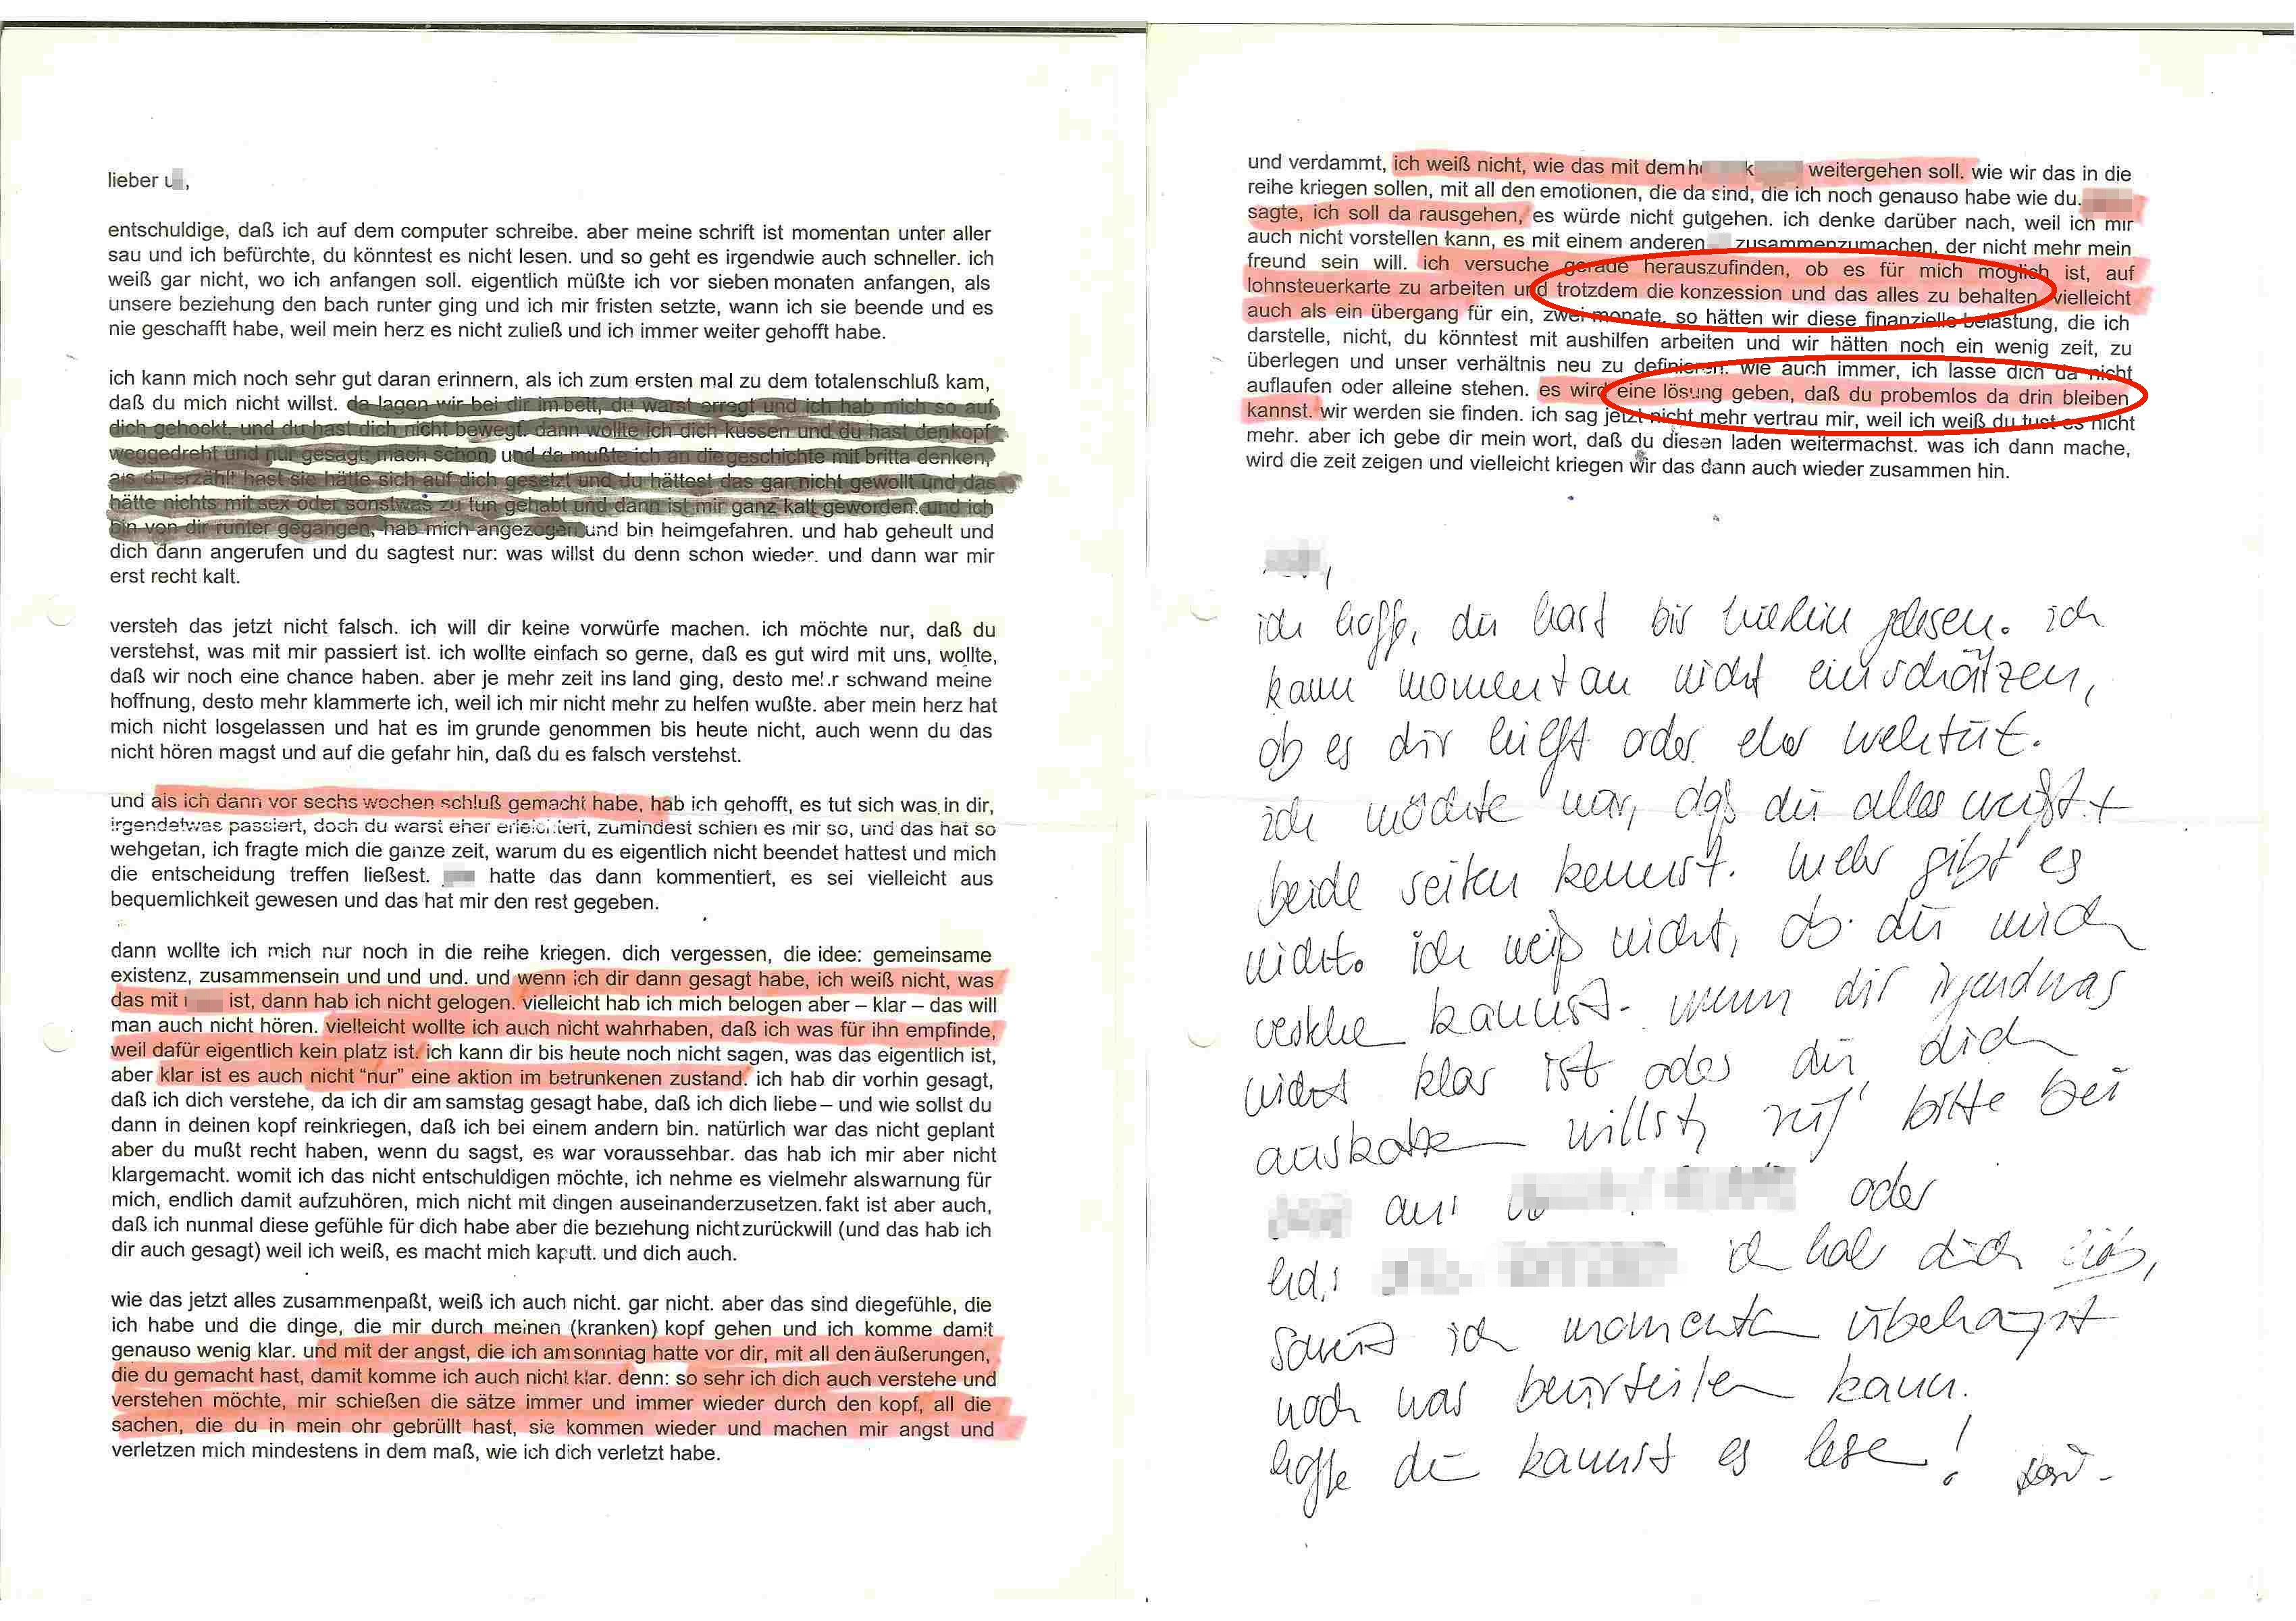 lieber u ,
entschuldige, daß ich auf dem computer schreibe. aber meine schrift ist momentan unter aller
sau und ich befürchte, du könntest es nicht lesen. und so geht es irgendwie auch schneller. ich
weiß gar nicht, wo ich anfangen soll. eigentlich müßte ich vor sieben monaten anfangen, als
unsere beziehung den bach runter ging und ich mir fristen setzte, wann ich sie beende und es
nie geschafft habe, weil mein herz es nicht zuließ und ich immer weiter gehofft habe.
ich kann mich noch sehr gut daran erinnern, als ich zum ersten mal zu dem totalenschluß kam,
daß du mich nicht willst.
und bin heimgefahren. und hab geheult und
dich dann angerufen und du sagtest nur: was willst du denn schon wieder. und dann war mir
erst recht kalt.
versteh das jetzt nicht falsch. ich will dir keine vorwürfe machen. ich möchte nur, daß du
verstehst, was mit mir passiert ist. ich wollte einfach so gerne, daß es gut wird mit uns, wollte,
daß wir noch eine chance haben. aber je mehr zeit ins land ging, desto mehr schwand meine
hoffnung, desto mehr klammerte ich, weil ich mir nicht mehr zu helfen wußte. aber mein herz hat
mich nicht losgelassen und hat es im grunde genommen bis heute nicht, auch wenn du das
nicht hören magst und auf die gefahr hin, daß du es falsch verstehst.
und als ich dann vor sechs wochen schluß gemacht habe, hab ich gehofft, es tut sich was in dir,
irgendetwas passiert, doch du warst eher erleichtert, zumindest schien es mir so, und das hat so
wehgetan, ich fragte mich die ganze zeit, warum du es eigentlich nicht beendet hattest und mich
die entscheidung treffen ließest. hatte das dann kommentiert, es sei vielleicht aus
bequemlichkeit gewesen und das hat mir den rest gegeben.
dann wollte ich mich nur noch in die reihe kriegen. dich vergessen, die idee: gemeinsame
existenz, zusammensein und und und. und wenn ich dir dann gesagt habe, ich weiß nicht, was
das mit ist, dann hab ich nicht gelogen. vielleicht hab ich mich belogen aber – klar – das will
man auch nicht hören. vielleicht wollte ich auch nicht wahrhaben, daß ich was für ihn empfinde,
weil dafür eigentlich kein platz ist. ich kann dir bis heute noch nicht sagen, was das eigentlich ist,
aber klar ist es auch nicht "nur" eine aktion im betrunkenen zustand. ich hab dir vorhin gesagt,
daß ich dich verstehe, da ich dir am samstag gesagt habe, daß ich dich liebe – und wie sollst du
dann in deinen kopf reinkriegen, daß ich bei einem andern bin. natürlich war das nicht geplant
aber du mußt recht haben, wenn du sagst, es war voraussehbar. das hab ich mir aber nicht
klargemacht. womit ich das nicht entschuldigen möchte, ich nehme es vielmehr alswarnung für
mich, endlich damit aufzuhören, mich nicht mit dingen auseinanderzusetzen. fakt ist aber auch,
daß ich nunmal diese gefühle für dich habe aber die beziehung nicht zurückwill (und das hab ich
dir auch gesagt) weil ich weiß, es macht mich kaputt. und dich auch.
wie das jetzt alles zusammenpaßt, weiß ich auch nicht. gar nicht. aber das sind diegefühle, die
ich habe und die dinge, die mir durch meinen (kranken) kopf gehen und ich komme damit
genauso wenig klar. und mit der angst, die ich am sonntag hatte vor dir, mit all den äußerungen,
die du gemacht hast, damit komme ich auch nicht klar. denn: so sehr ich dich auch verstehe und
verstehen möchte, mir schießen die sätze immer und immer wieder durch den kopf, all die
sachen, die du in mein ohr gebrüllt hast, sie kommen wieder und machen mir angst und
verletzen mich mindestens in dem maß, wie ich dich verletzt habe.
und verdammt, ich weiß nicht, wie das mit dem h k weitergehen soll. wie wir das in die
reihe kriegen sollen, mit all den emotionen, die da sind, die ich noch genauso habe wie du.
sagte, ich soll da rausgehen, es würde nicht gutgehen. ich denke darüber nach, weil ich mir
auch nicht vorstellen kann, es mit einem anderen zusammenzumachen, der nicht mehr mein
freund sein will. ich versuche gerade herauszufinden, ob es für mich möglich ist, auf
lohnsteuerkarte zu arbeiten und trotzdem die konzession und das alles zu behalten vielleicht
auch als ein übergang für ein, zwei monate, so hätten wir diese finanzielle belastung, die ich
darstelle, nicht, du könntest mit aushilfen arbeiten und wir hätten noch ein wenig zeit, zu
überlegen und unser verhältnis neu zu definieren. wie auch immer, ich lasse dich da nicht
auflaufen oder alleine stehen. es wird eine lösung geben, daß du probemlos da drin bleiben
kannst. wir werden sie finden. ich sag jetzt nicht mehr vertrau mir, weil ich weiß du tust es nicht
mehr. aber ich gebe dir mein wort, daß du diesen laden weitermachst. was ich dann mache,
wird die zeit zeigen und vielleicht kriegen wir das dann auch wieder zusammen hin.
ich hoffe, du hast bis hierhin gelesen. ich
kann momentan nicht einschätzen,
ob es dir hilft oder eher wehtut.
ich möchte nur, daß du alles weißt +
beide seiten kennst. mehr gibt es
nicht. ich weiß nicht, ob du mich
verstehen kannst. wenn dir irgendwas
nicht klar ist oder du dich
auskotzen willst, ruf bitte bei
an: oder
ich hab dich lieb,
soweit ich momentan überhaupt
noch was beurteilen kann.
hoffe du kannst es lesen!